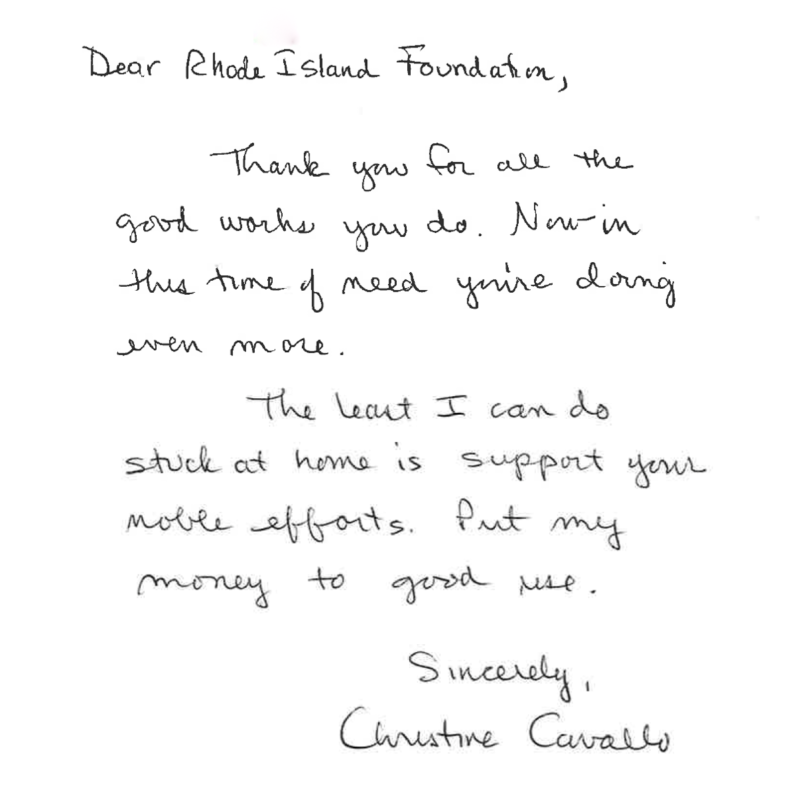 Dear Rhode Island Foundation,
Thank you for all the
good works you do. Now in
this time of need you're doing
even more.
The least I can do
stuck at home is support your
noble efforts. Put my
money to good use.
Sincerely,
Christine Cavallo